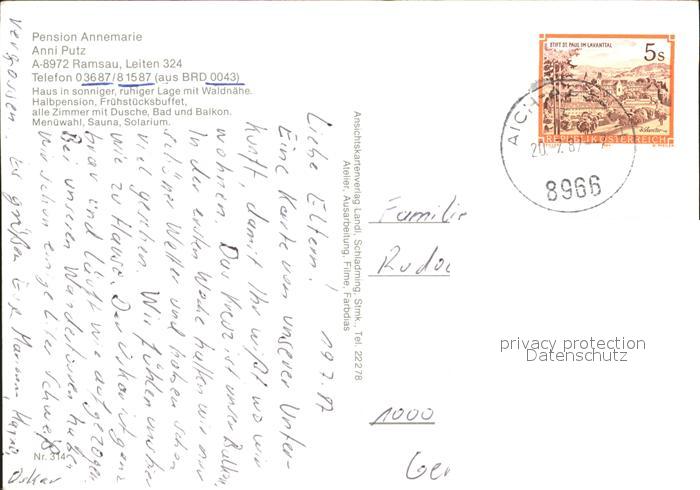 Pension Annemarie
Anni Putz
A-8972 Ramsau, Leiten 324
Telefon 03687/81587 (aus BRD 0043)
Haus in sonniger, ruhiger Lage mit Waldnähe.
Halbpension, Frühstücksbuffet,
alle Zimmer mit Dusche, Bad und Balkon.
Menüwahl, Sauna, Solarium.
19.7.87
Liebe Eltern!
Eine Karte von unserer Unter-
kunft, damit Ihr wißt wo wir
wohnen. Das Kreuz ist unser Balkon.
In der ersten Woche hatten wir nur
schönes Wetter und haben schon
viel gesehen. Wir fühlen uns hier
wie zu Hause. Der Oskar ist ganz
brav und läuft wie aufgezogen.
Bei unseren Wandertouren haben
wir schon einige Liter Schweiß
vergossen. Es grüßen Euch
Oskar
Nr. 314
Ansichtskartenverlag Landl, Schladming, Stmk., Tel. 22278
Atelier, Ausarbeitung, Filme, Farbdias
STIFT ST. PAUL IM LAVANTTAL
5s
REPUBLIK ÖSTERREICH
AICH-
20. 7. 87
8966
Familie
1000
privacy protection
Datenschutz